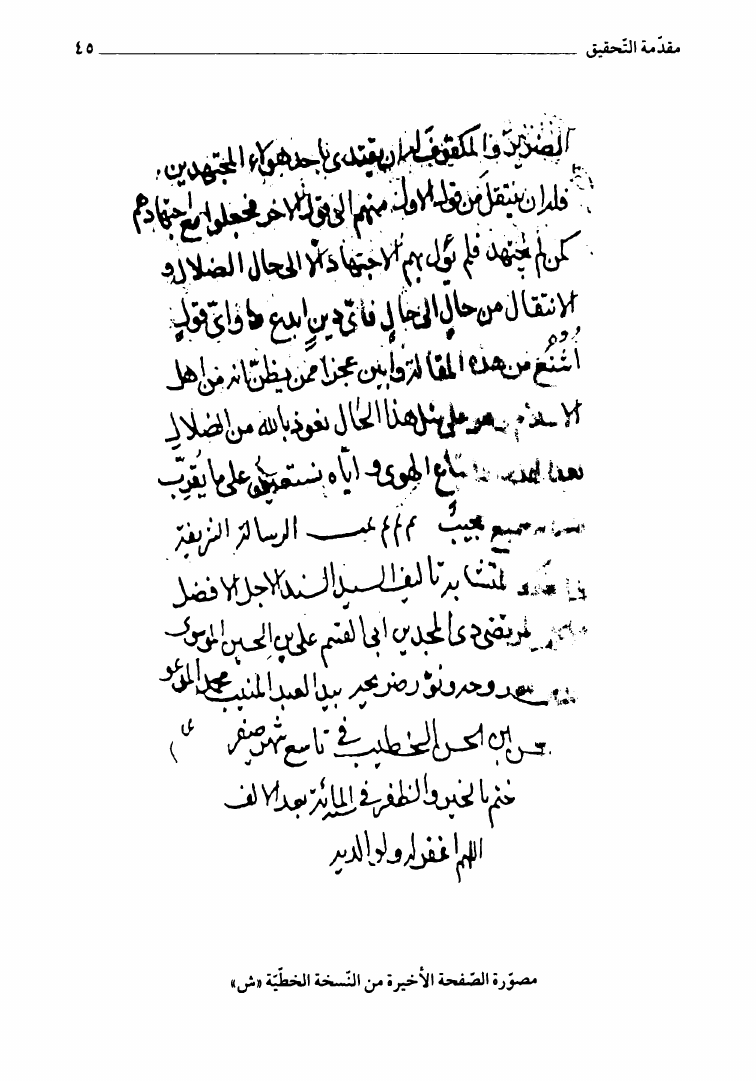 مقدّمة التّحقيق ٤٥
الضرير والمكفوف له ان يقتدى باحد هولاء المجتهدين
فله ان ينتقل من قوله الاول منهم الى قول الاخر فجعلوا مع اجتهادهم
كمن لم يجتهد فلم يؤل بهم الاجتهاد الا الى حال الضلال و
الانتقال من حالٍ الى حالٍ فاى دين ابدع من هذا واى قولٍ
اشنع من هذه المقالة وابين عجزا ممن يظن انه من اهل
الاسلام وهو على مثل هذا الحال نعوذ بالله من الضلال
بعد الهدى اتباع الهوى و اياه نستعين على ما يقرب
سميع مجيب الرسالة الشريفة
المتشابه تاليف السيد السند الاجل الافضل
المرتضى ذى المجدين ابى القسم على بن الحسين الموسوى
روحه ونور ضريحه بيد العبد المنيب محمد
بن الحسن الخطيب فى تاسع شهر صفر
ختم بالخير والظفر فى المائة بعد الالف
اللهم اغفر له ولوالديه
مصوّرة الصّفحة الأخيرة من النّسخة الخطّيّة «ش»